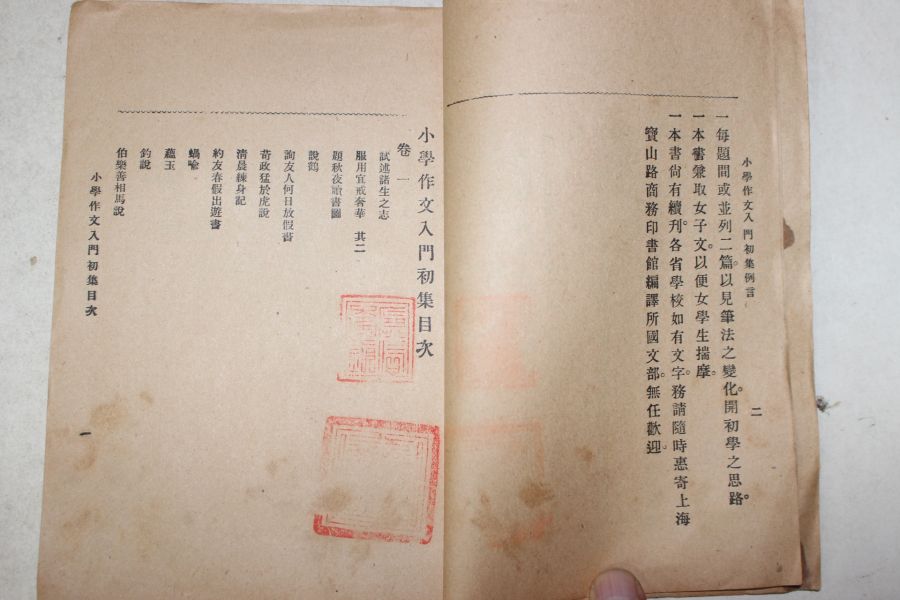 小學作文入門初集例言
二
一每題間或並列二篇。以見筆法之變化。開初學之思路。
一本書兼取女子文。以便女學生揣摩。
一本書尚有續刊。各省學校如有文字。務請隨時惠寄上海
寶山路商務印書館編譯所國文部。無任歡迎。
小學作文入門初集目次
卷一
試述諸生之志
服用宜戒奢華 其二
題秋夜讀書圖
說鶴
詢友人何日放假書
苛政猛於虎說
清晨練身記
約友春假出遊書
蝸喩
蘊玉
釣說
伯樂善相馬說
小學作文入門初集目次
一